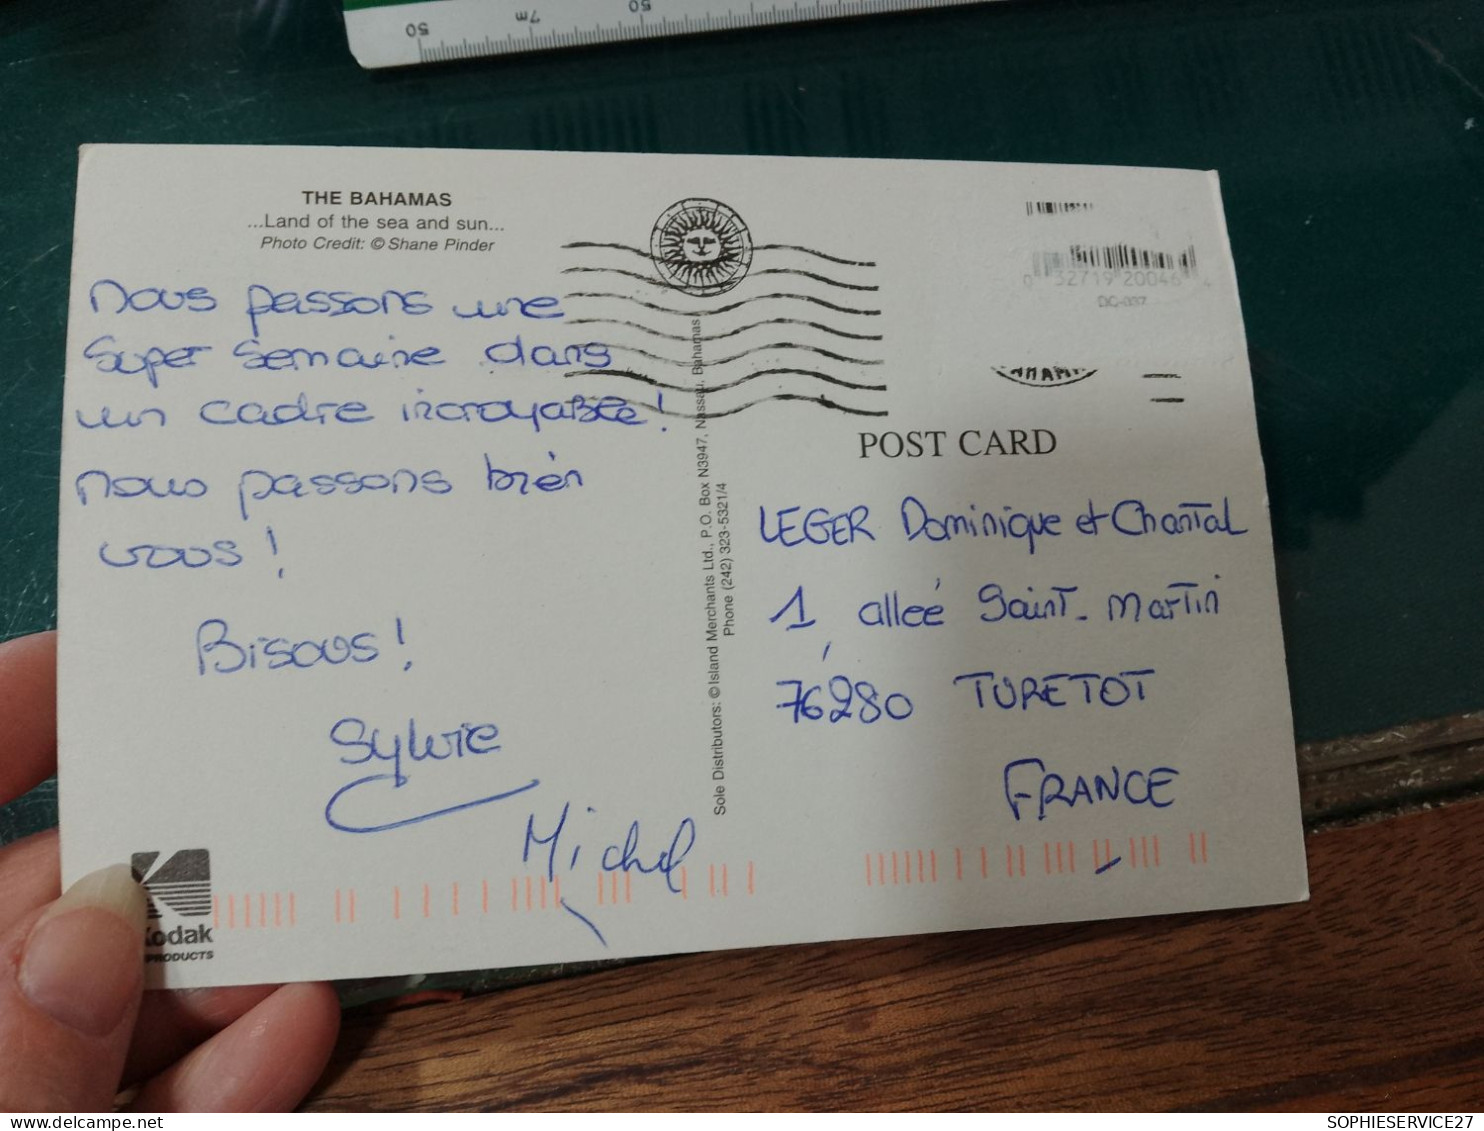 50
7m
50
THE BAHAMAS
...Land of the sea and sun...
Photo Credit: © Shane Pinder
nous passons une
Super Semaine dans
un cadre incroyable !
nous passons bièn
vous !
Bisous !
Sylvie
Michel
Kodak
PRODUCTS
Sole Distributors: © Island Merchants Ltd., P.O. Box N3947, Nassau, Bahamas
Phone (242) 323-5321/4
0 32719 20046 4
POST CARD
LEGER Dominique et Chantal
1, alleé Saint-Martin
76280 TURETOT
FRANCE
SOPHIESERVICE27